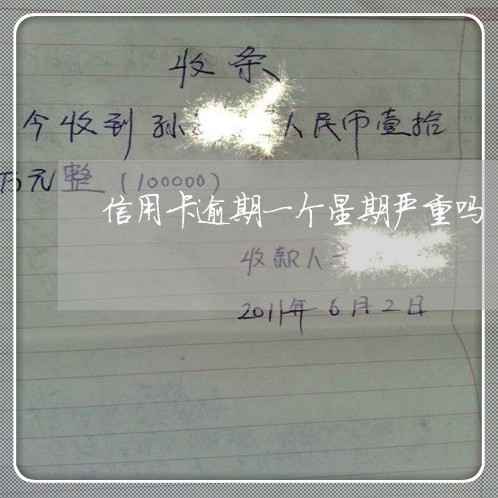 收条
今收到孙 人民币壹拾
万元整(100000)
信用卡逾期一个星期严重吗
收款人
2011年6月2日